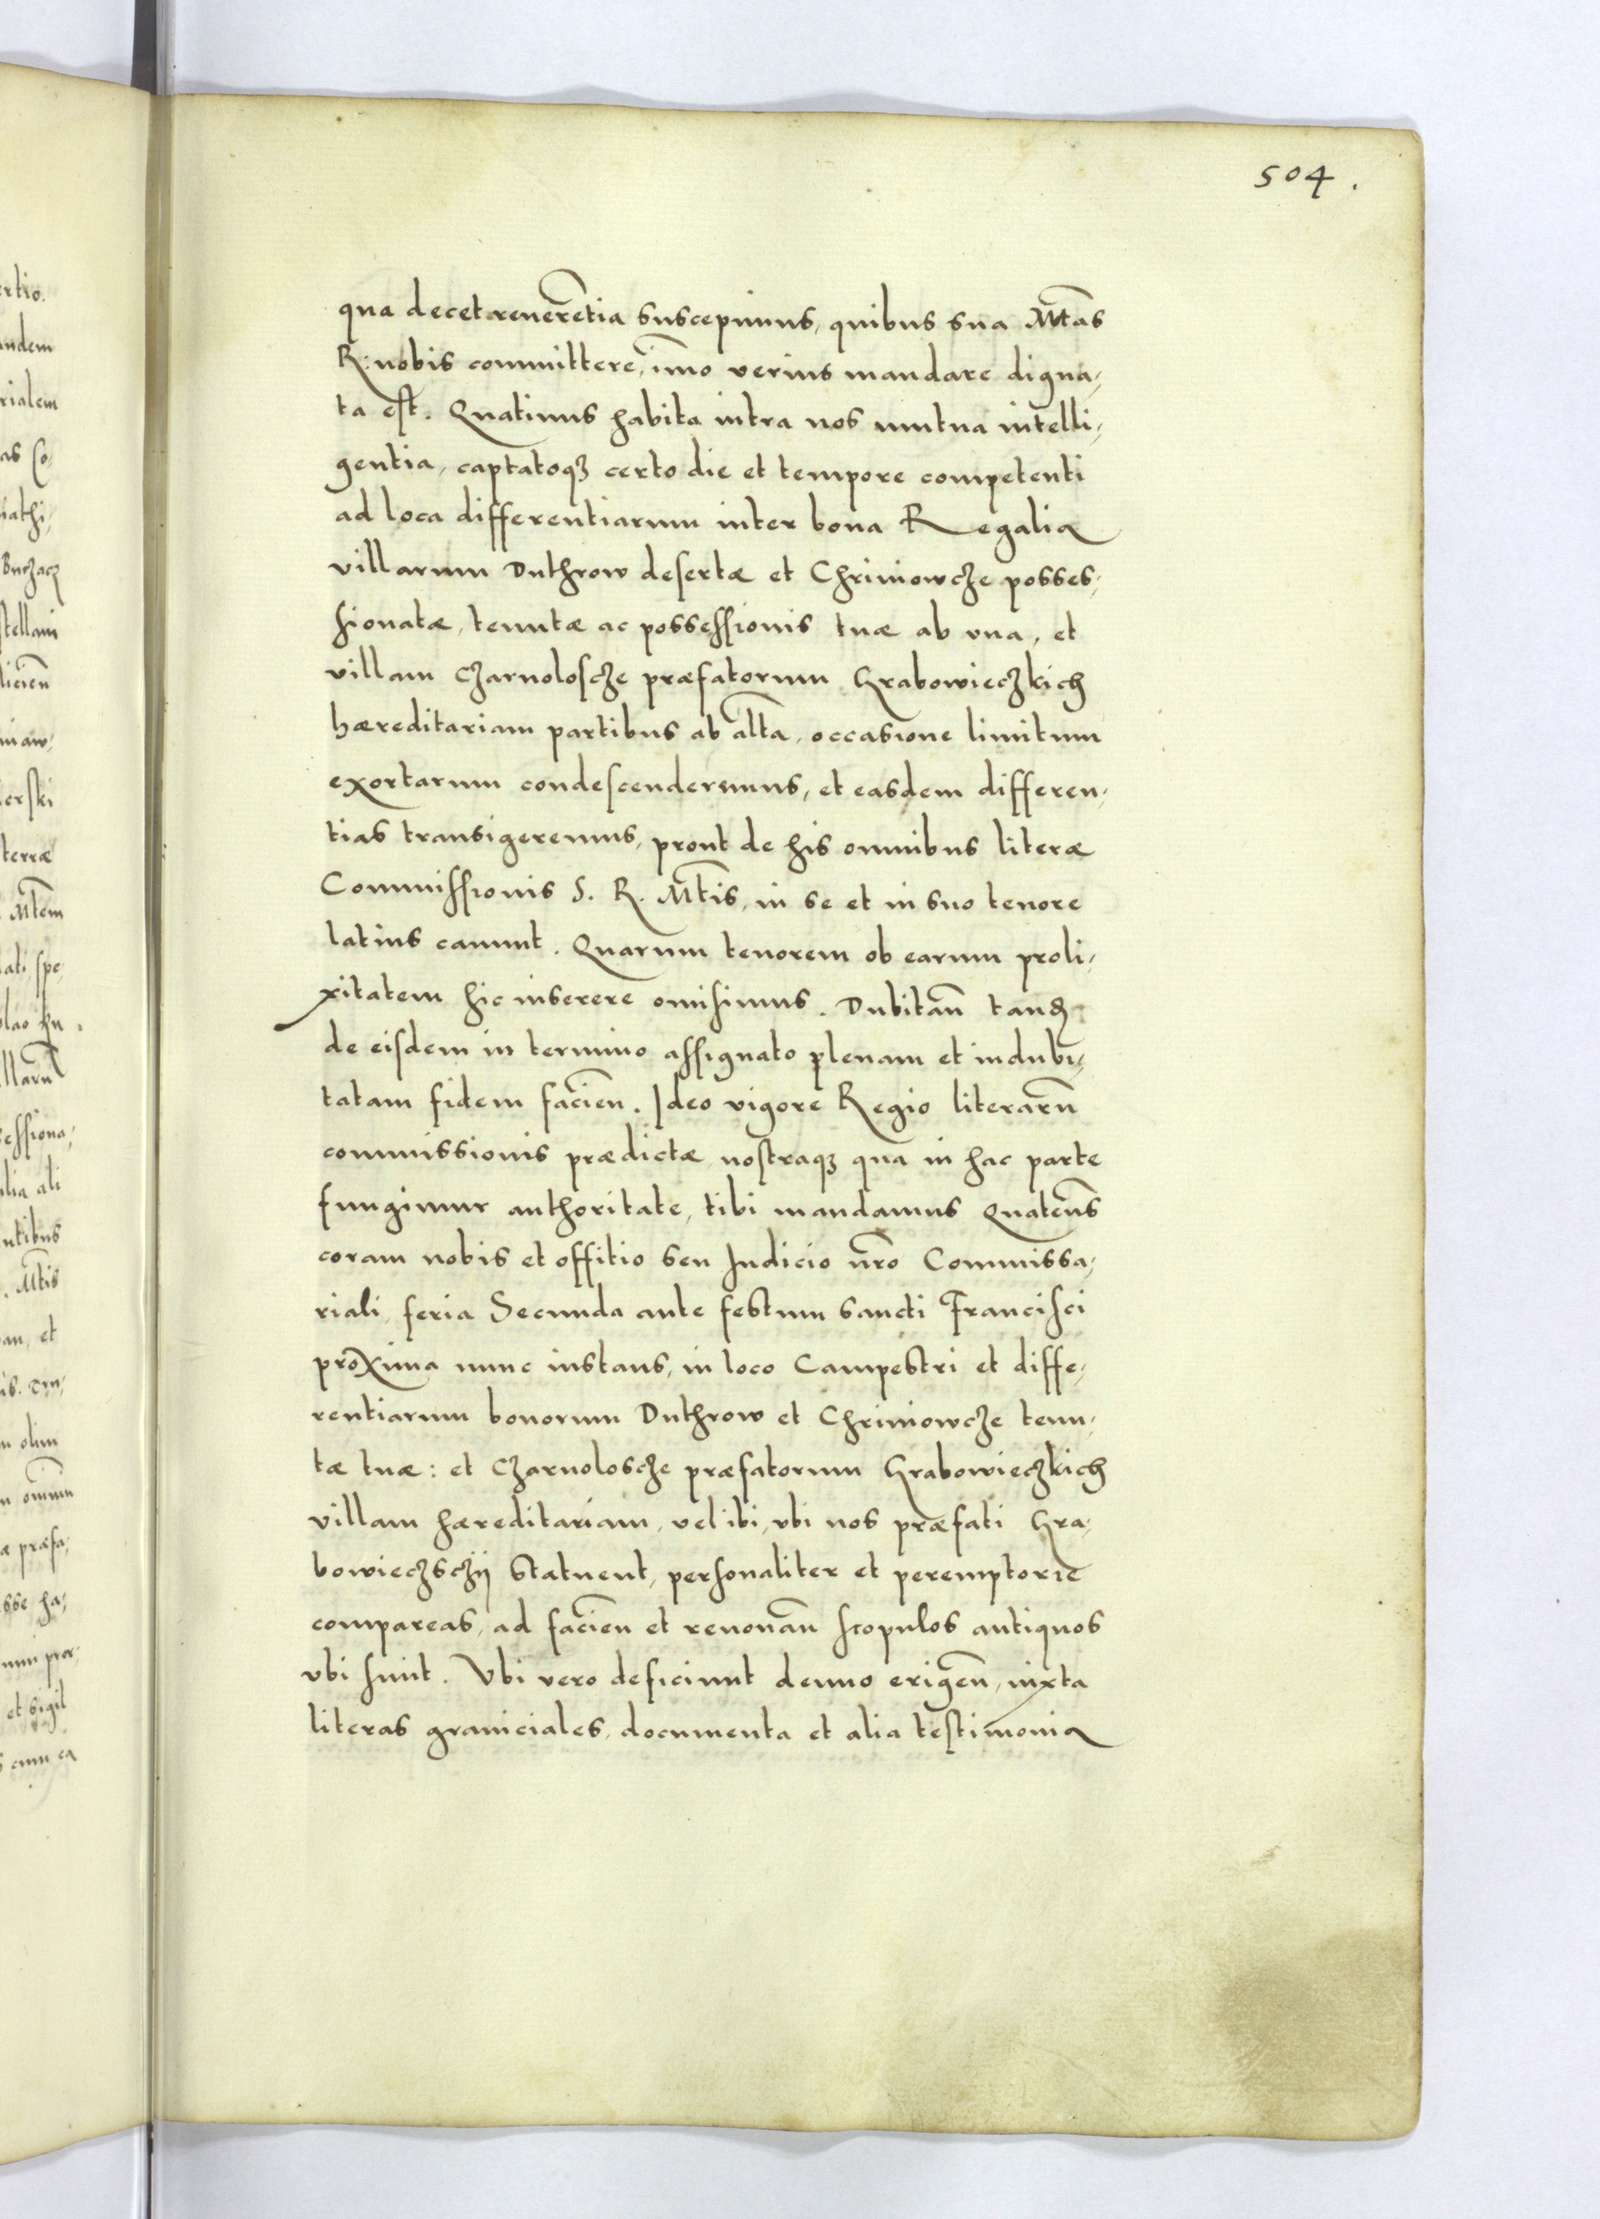 504.
qua decet reuere͠tia suscepimus, quibus sua M͠tas
R: nobis committere, im̃o verius mandare digna,
ta est. Quatinus habita intra nos mutua intelli,
gentia, captatoqꝫ certo die et tempore competenti
ad loca differentiarum inter bona Regalia
villarum Duthrow desertæ et Chriniowcze posses,
sionatæ, tenutæ ac possessionis tuæ ab vna, et
villam Czarnoloscze præfatorum Grabowieczkich
hæreditariam partibus ab alt̃a, occasione limitum
exortarum condescenderemus, et easdem differen,
tias transigeremus, prout de his omnibus literæ
Commissionis S. R. Mt̃is, in se et in suo tenore
latius canunt. Quarum tenorem ob earum proli,
xitatem hic inserere omisimus. Dubitañ tandꝫ
de eisdem in termino assignato plenam et indubi,
tatam fidem facieñ. Ideo vigore Regio literarũ
commissionis prædictæ nostraqꝫ qua in hac parte
fungimur authoritate, tibi mandamus Quaten͠s
coram nobis et offitio seu Iudicio nr̃o Commissa,
riali, feria Secunda ante festum sancti Francisci
proxima nunc instans, in loco Campestri et diffe,
rentiarum bonorum Duthrow et Chriniowcze tenu,
tæ tuæ: et Czarnoloscze præfatorum Grabowieczkich
villam hæreditariam, vel ibi, vbi nos præfati Gra,
bowieczsczij statuent, personaliter et peremptorie
compareas, ad facieñ et renouañ scopulos antiquos
vbi sunt. Vbi vero deficiunt denuo erigeñ, iuxta
literas graniciales, documenta et alia testimonia